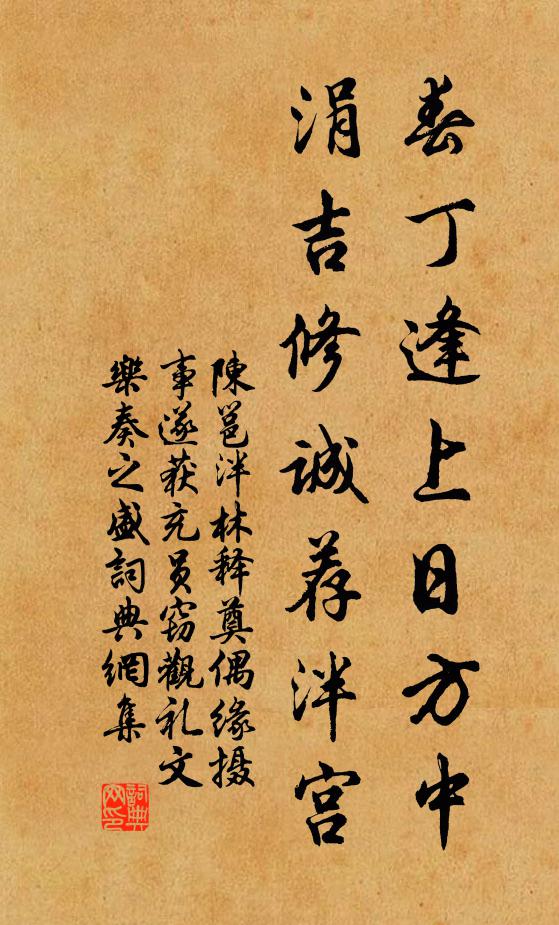 春丁逢上日方中
涓吉修诚荐泮宫
陳邕泮林释奠偶缘摄
事遂获充员窃觀礼文
樂奏之盛詞典網集
詞典网印